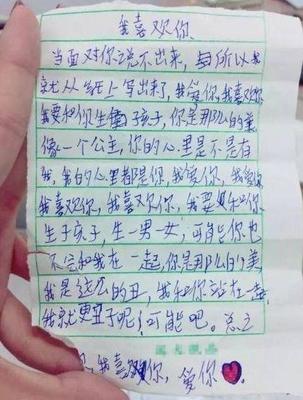 我喜欢你
当面对你说不出来,所以我
就从纸上写出来了,我爱你,我喜欢你
我要和你生孩子,你是那么的美
像一个公主,你的心里是不是有
我,我的心里都是你,我爱你,我爱你
我喜欢你,我喜欢你,我要和你
生子孩子,生一男一女,可能你也
不会和我在一起,你是那么的美
我是这么的丑,我和你站在一起
我就更丑了呢!可能吧。总之
我喜欢你,爱你